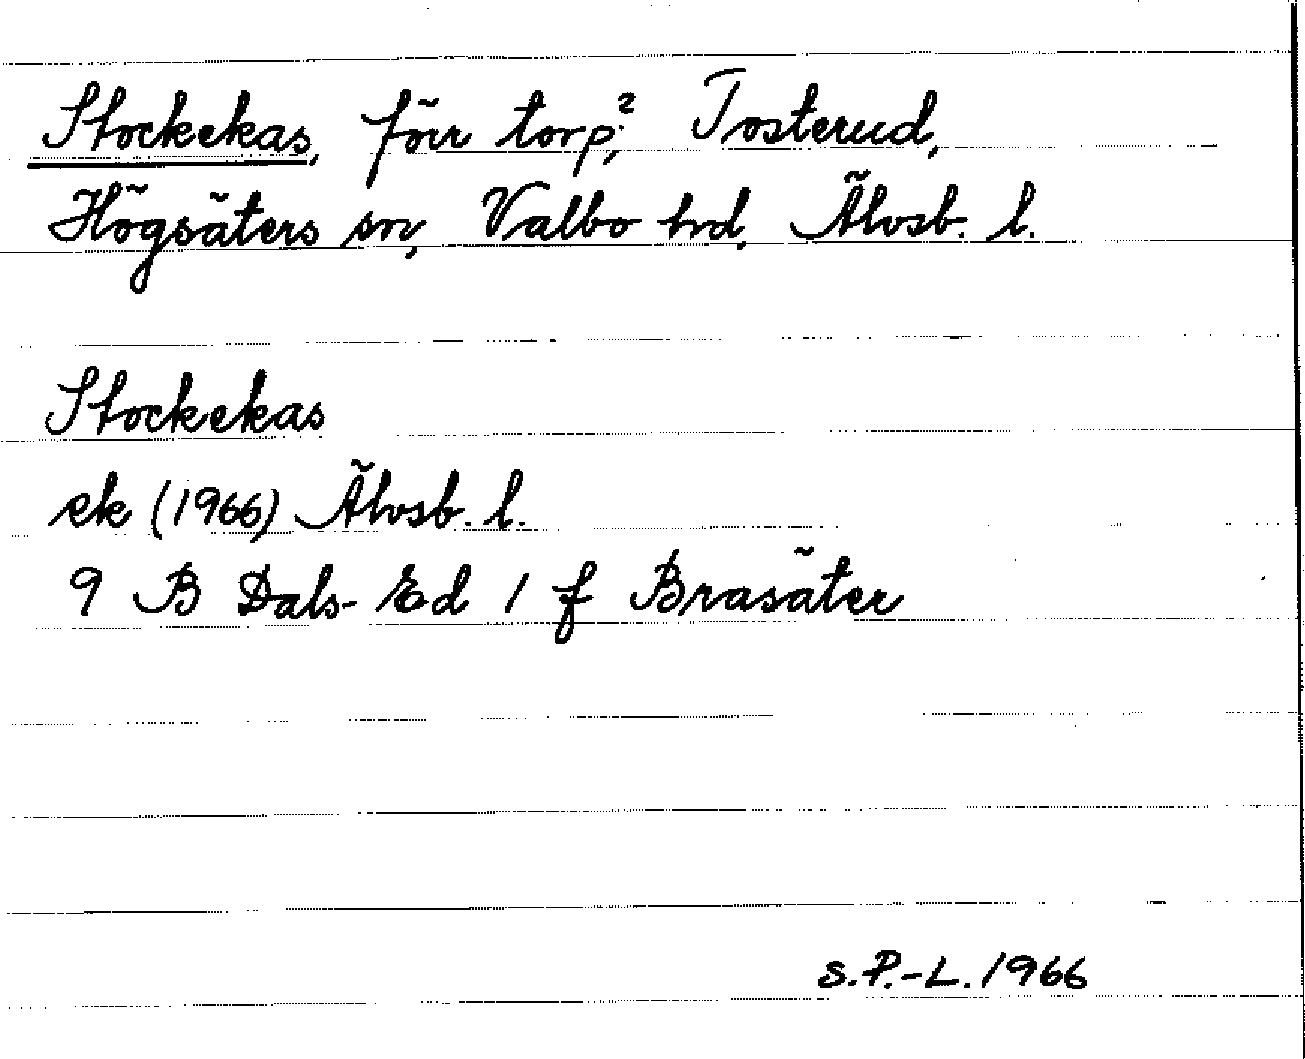 Stockekas, förr torp?, Tosterud,
Högsäters sn, Valbo hd, Älvsb. l.
Stockekas
ek (1966) Älvsb. l.
9 B Dals-Ed 1 f Brasäter
S.P.-L. 1966